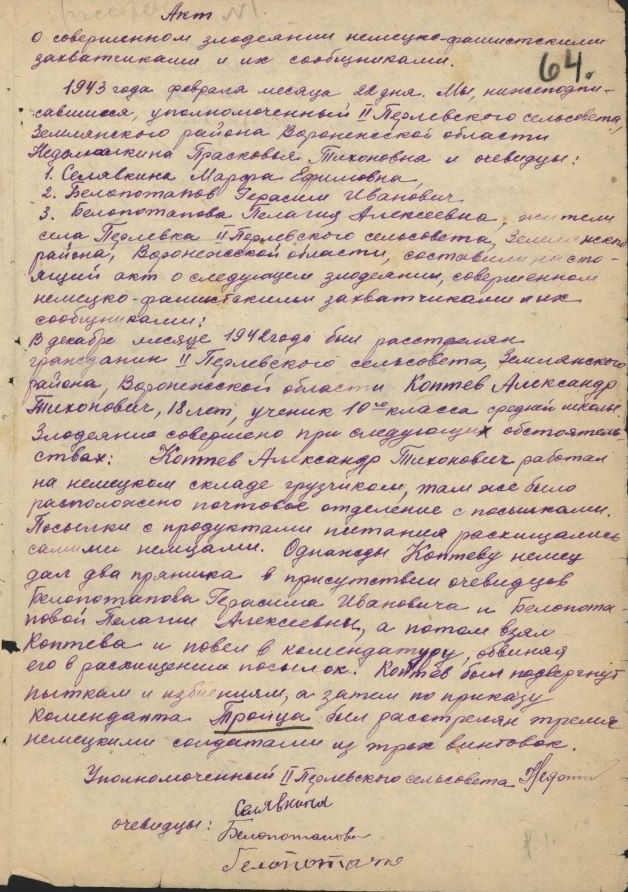 Акт №1.
о совершенном злодеянии немецко-фашистскими
захватчиками и их сообщниками.
64.
1943 года февраля месяца 22 дня. Мы, нижеподпи-
савшиеся, уполномоченный II Перлевского сельсовета,
Землянского района Воронежской области
Прасковья Тихоновна и очевидцы:
1. Селявкина Марфа Ефимовна
2. Белопотапов Герасим Иванович
3. Белопотапова Пелагия Алексеевна, жители
села Перлевка II Перлевского сельсовета, Землянского
района, Воронежской области, составили насто-
ящий акт о следующем злодеянии, совершенном
немецко-фашистскими захватчиками и их
сообщниками:
В декабре месяце 1942 года был расстрелян
гражданин II Перлевского сельсовета, Землянского
района, Воронежской области Коптев Александр
Тихонович, 18 лет, ученик 10го класса средней школы
Злодеяние совершено при следующих обстоятель-
ствах: Коптев Александр Тихонович работал
на немецком складе грузчиком, там же было
расположено почтовое отделение с посылками.
Посылки с продуктами питания расхищались
самими немцами. Однажды Коптеву немец
дал два пряника в присутствии очевидцев
Белопотапова Герасима Ивановича и Белопота-
повой Пелагии Алексеевны, а потом взял
Коптева и повел в комендатуру, обвиняя
его в расхищении посылок. Коптев был подвергнут
пыткам и избиениям, а затем по приказу
коменданта Тройца был расстрелян тремя
немецкими солдатами из трех винтовок.
Уполномоченный II Перлевского сельсовета
очевидцы: Селявкина
Белопотапова
Белопотапо